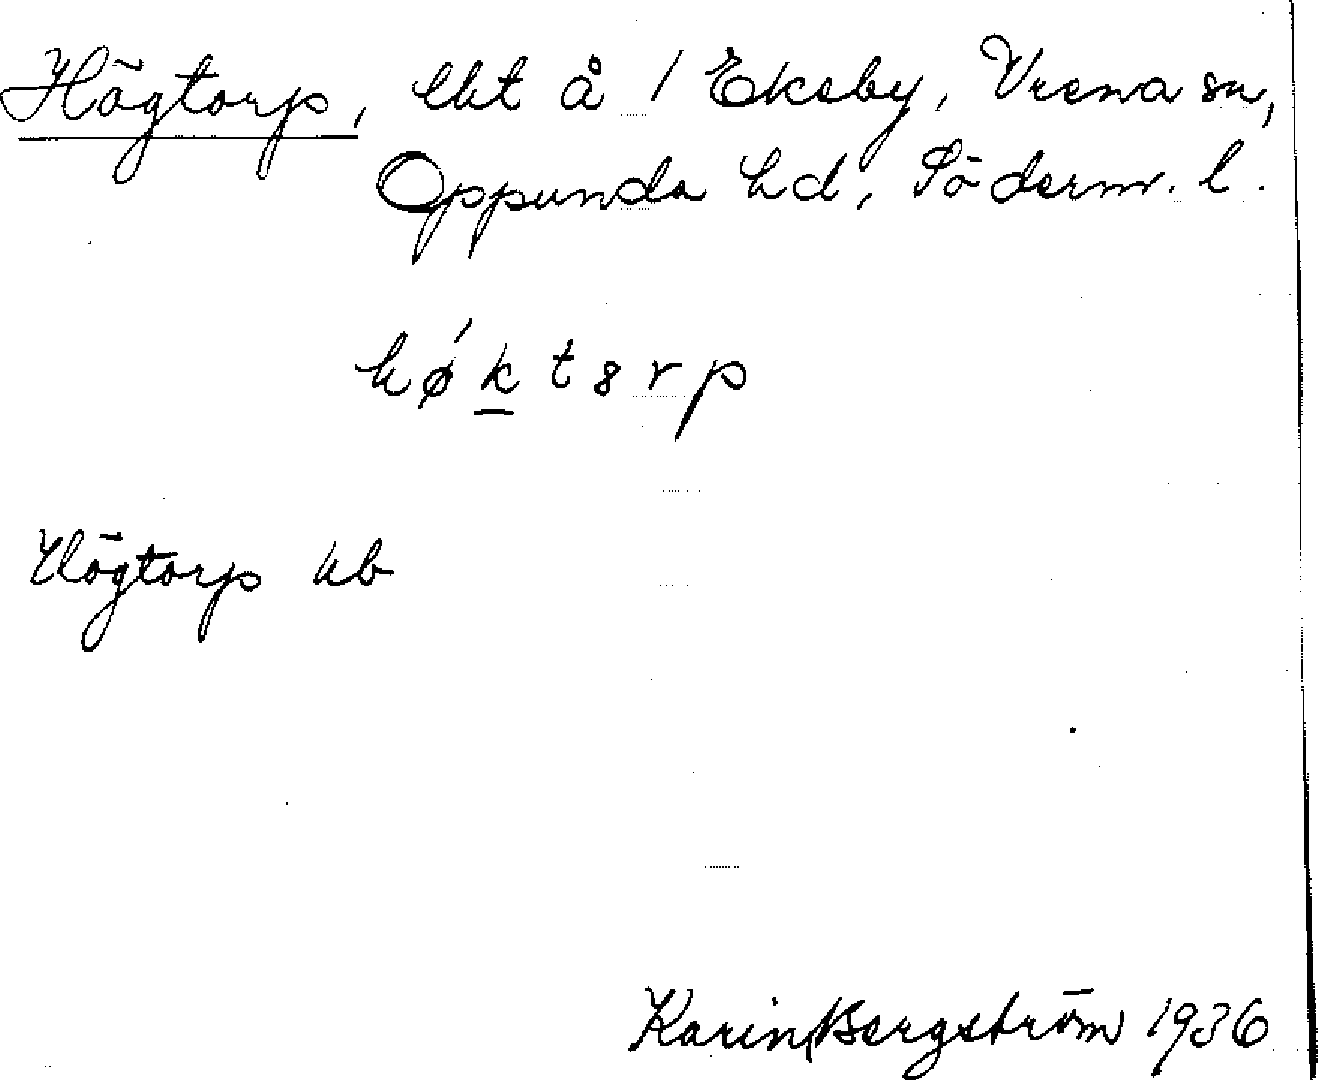 Högtorp, lht å 1 Ekeby, Vrena sn,
Oppunda hd, Söderm. l.
høktorp
Högtorp kb
Karin Bergström 1936